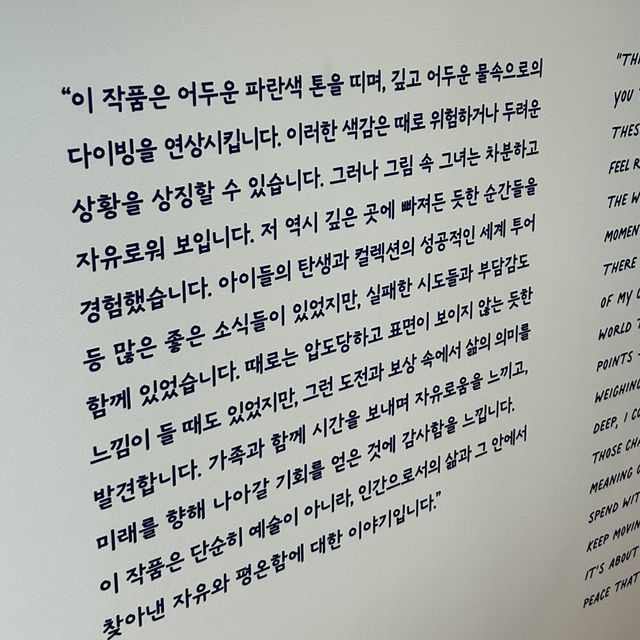 “이 작품은 어두운 파란색 톤을 띠며, 깊고 어두운 물속으로의
다이빙을 연상시킵니다. 이러한 색감은 때로 위험하거나 두려운
상황을 상징할 수 있습니다. 그러나 그림 속 그녀는 차분하고
자유로워 보입니다. 저 역시 깊은 곳에 빠져든 듯한 순간들을
경험했습니다. 아이들의 탄생과 컬렉션의 성공적인 세계 투어
등 많은 좋은 소식들이 있었지만, 실패한 시도들과 부담감도
함께 있었습니다. 때로는 압도당하고 표면이 보이지 않는 듯한
느낌이 들 때도 있었지만, 그런 도전과 보상 속에서 삶의 의미를
발견합니다. 가족과 함께 시간을 보내며 자유로움을 느끼고,
미래를 향해 나아갈 기회를 얻은 것에 감사함을 느낍니다.
이 작품은 단순히 예술이 아니라, 인간으로서의 삶과 그 안에서
찾아낸 자유와 평온함에 대한 이야기입니다.”
“TH
YOU
THES
FEEL R
THE W
MOMEN
THERE
OF MY C
WORLD T
POINTS
WEIGHING
DEEP, I CO
THOSE CHA
MEANING O
SPEND WIT
KEEP MOVIN
IT'S ABOUT
PEACE THAT